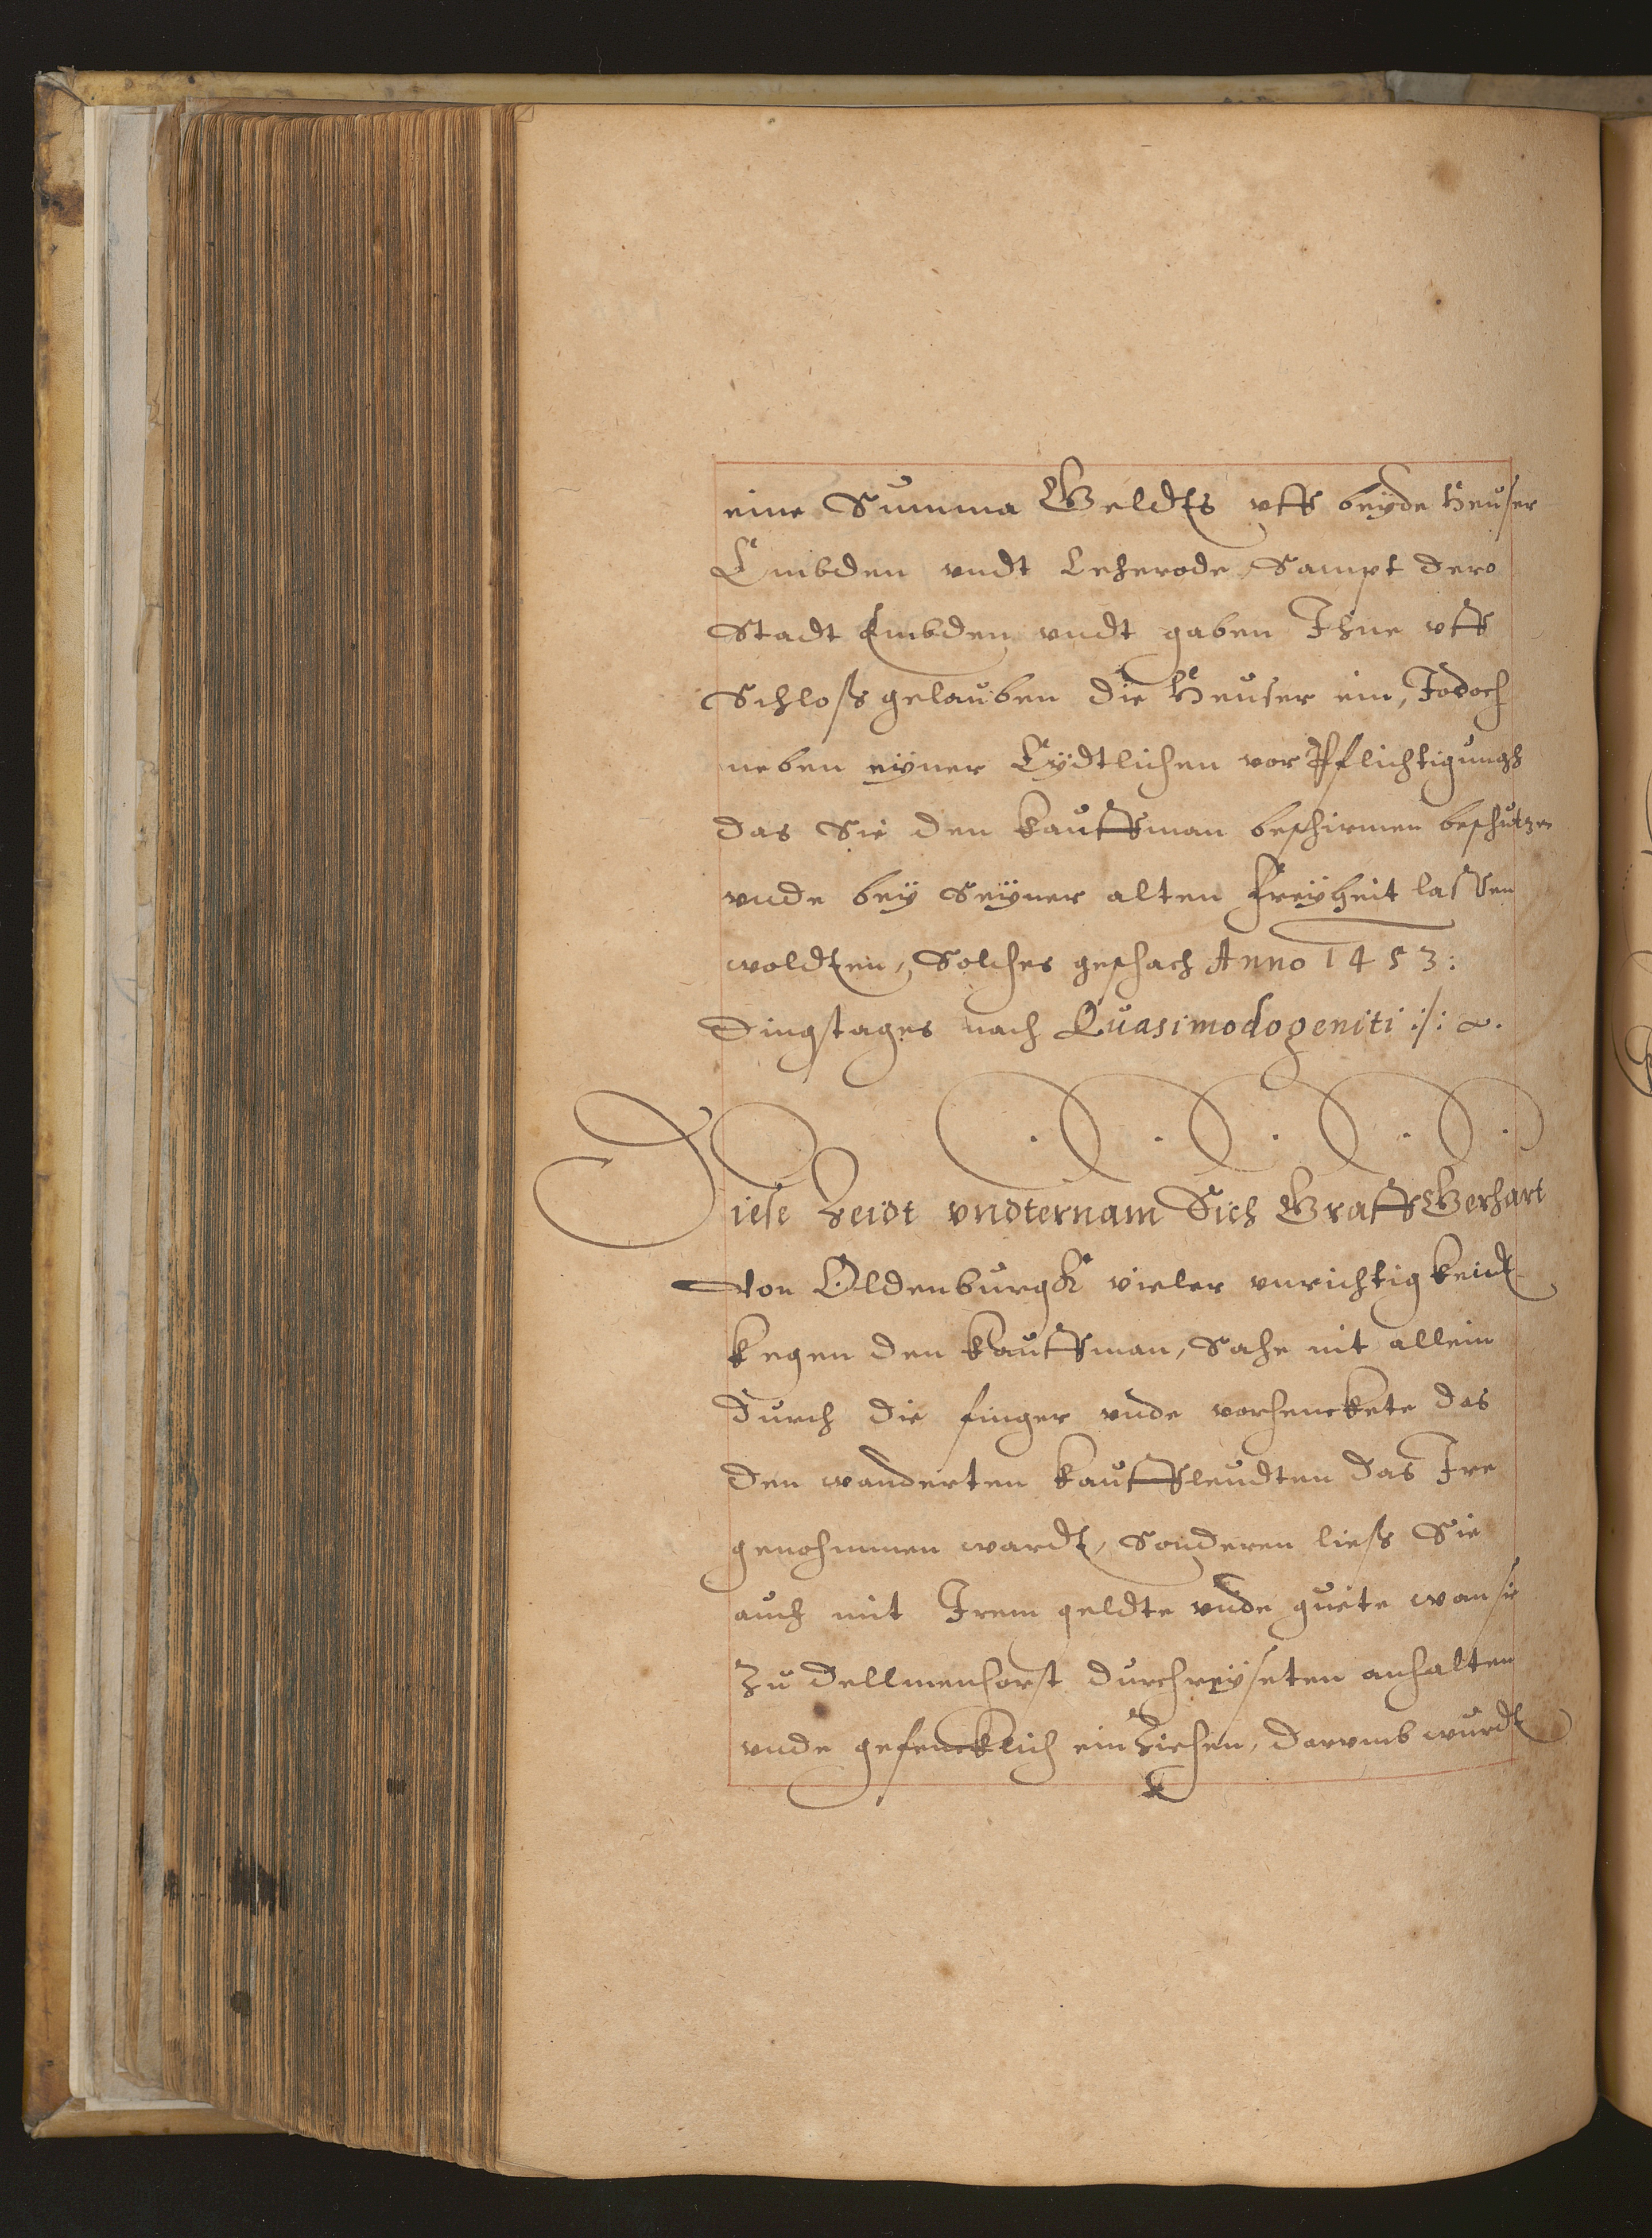 eine Summa Geldts vff beÿde Heuser
Embden vndt Leherode Sampt dero
Stadt Embden vndt gaben Ihne vff
Schloß gelauben die Heuser ein, Jodoch
neben eÿner Eÿdtlichen vor Pflichtigungh
das Sie den kauffman beschirmen beschutzen
vnde beÿ Seÿner alten Freÿheit lassen
woldten, Solches geschach Anno 1453:
Dingstages nach Quasimodogeniti :/:
Diese Zeidt vndternam Sich Graff Gerhart
Von Oldenburgk vieler vnrichtigkeidt
kegen den kauffman, Sahe nit allein
durch die finger vnde vorhenckete das
den wanderten kauffleudten das Ire
genohmmen wardt, Sonderen ließ Sie
auch mit Irem geldte vnde guete wan sie
Zu Dellmenhorst durchreÿseten anhalten
vnde gefencklich ein Ziehen, darumb wurdt